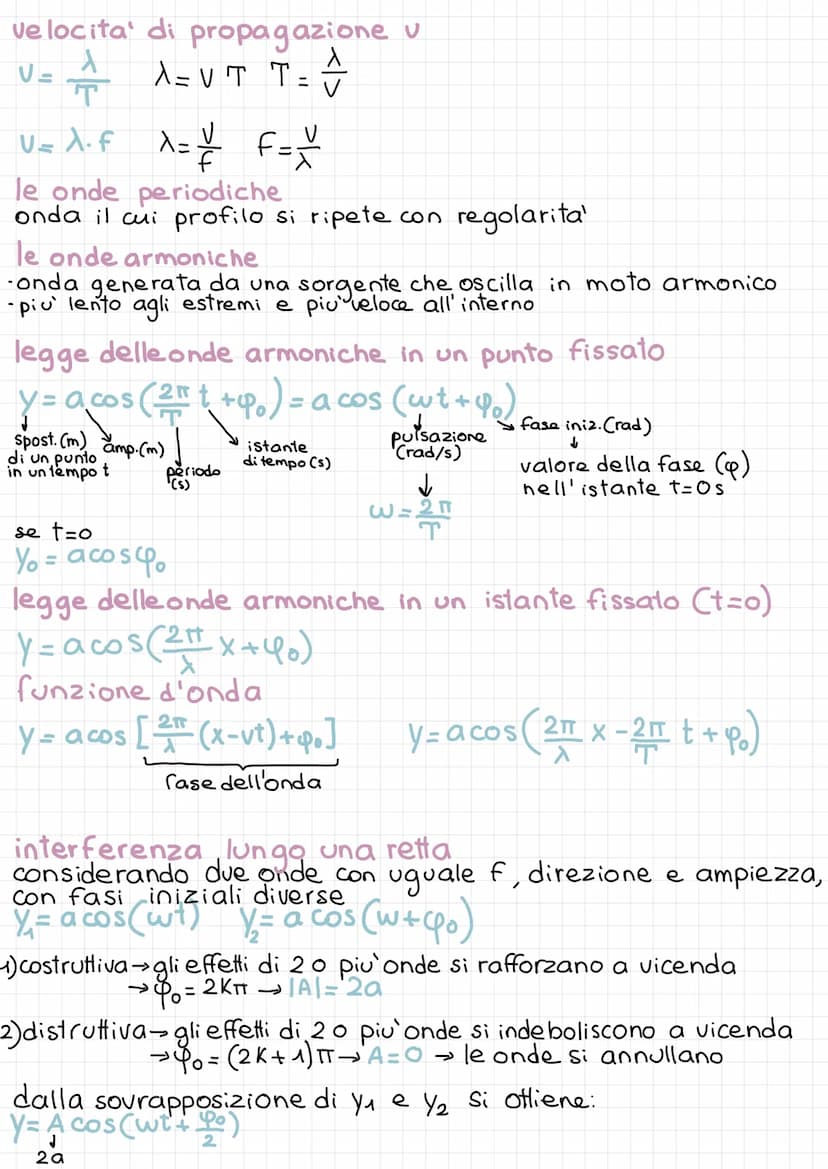 velocita' di propagazione v
v = λ/T λ = v T T = λ/v
v = λ·f λ = v/f F = v/λ
le onde periodiche
onda il cui profilo si ripete con regolarita'
le onde armoniche
-onda generata da una sorgente che oscilla in moto armonico
-piu' lento agli estremi e piu' veloce all'interno
legge delle onde armoniche in un punto fissato
y = a cos(2π/T t + φ₀) = a cos (ωt + φ₀)
spost.(m) di un punto in un tempo t
amp.(m)
periodo (s)
istante di tempo (s)
pulsazione (rad/s)
fase iniz.(rad)
valore della fase (φ) nell'istante t=0s
ω = 2π/T
se t=0
y₀ = a cos φ₀
legge delle onde armoniche in un istante fissato (t=0)
y = a cos(2π/λ x + φ₀)
funzione d'onda
y = a cos [2π/λ (x-vt) + φ₀] y = a cos(2π/λ x - 2π/T t + φ₀)
fase dell'onda
interferenza lungo una retta
considerando due onde con uguale f, direzione e ampiezza,
con fasi iniziali diverse
y₁ = a cos(ωt) y₂ = a cos(ω+φ₀)
1)costruttiva → gli effetti di 2 o piu' onde si rafforzano a vicenda
→ φ₀ = 2Kπ → |A| = 2a
2)distruttiva → gli effetti di 2 o piu' onde si indeboliscono a vicenda
→ φ₀ = (2K+1)π → A=0 → le onde si annullano
dalla sovrapposizione di y₁ e y₂ si ottiene:
y = A cos(ωt + φ₀/2)
2a